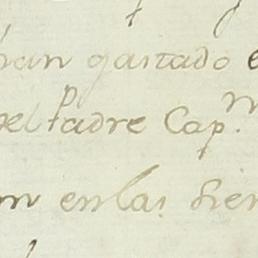 han gastado
el padre Cap.n
en las sier